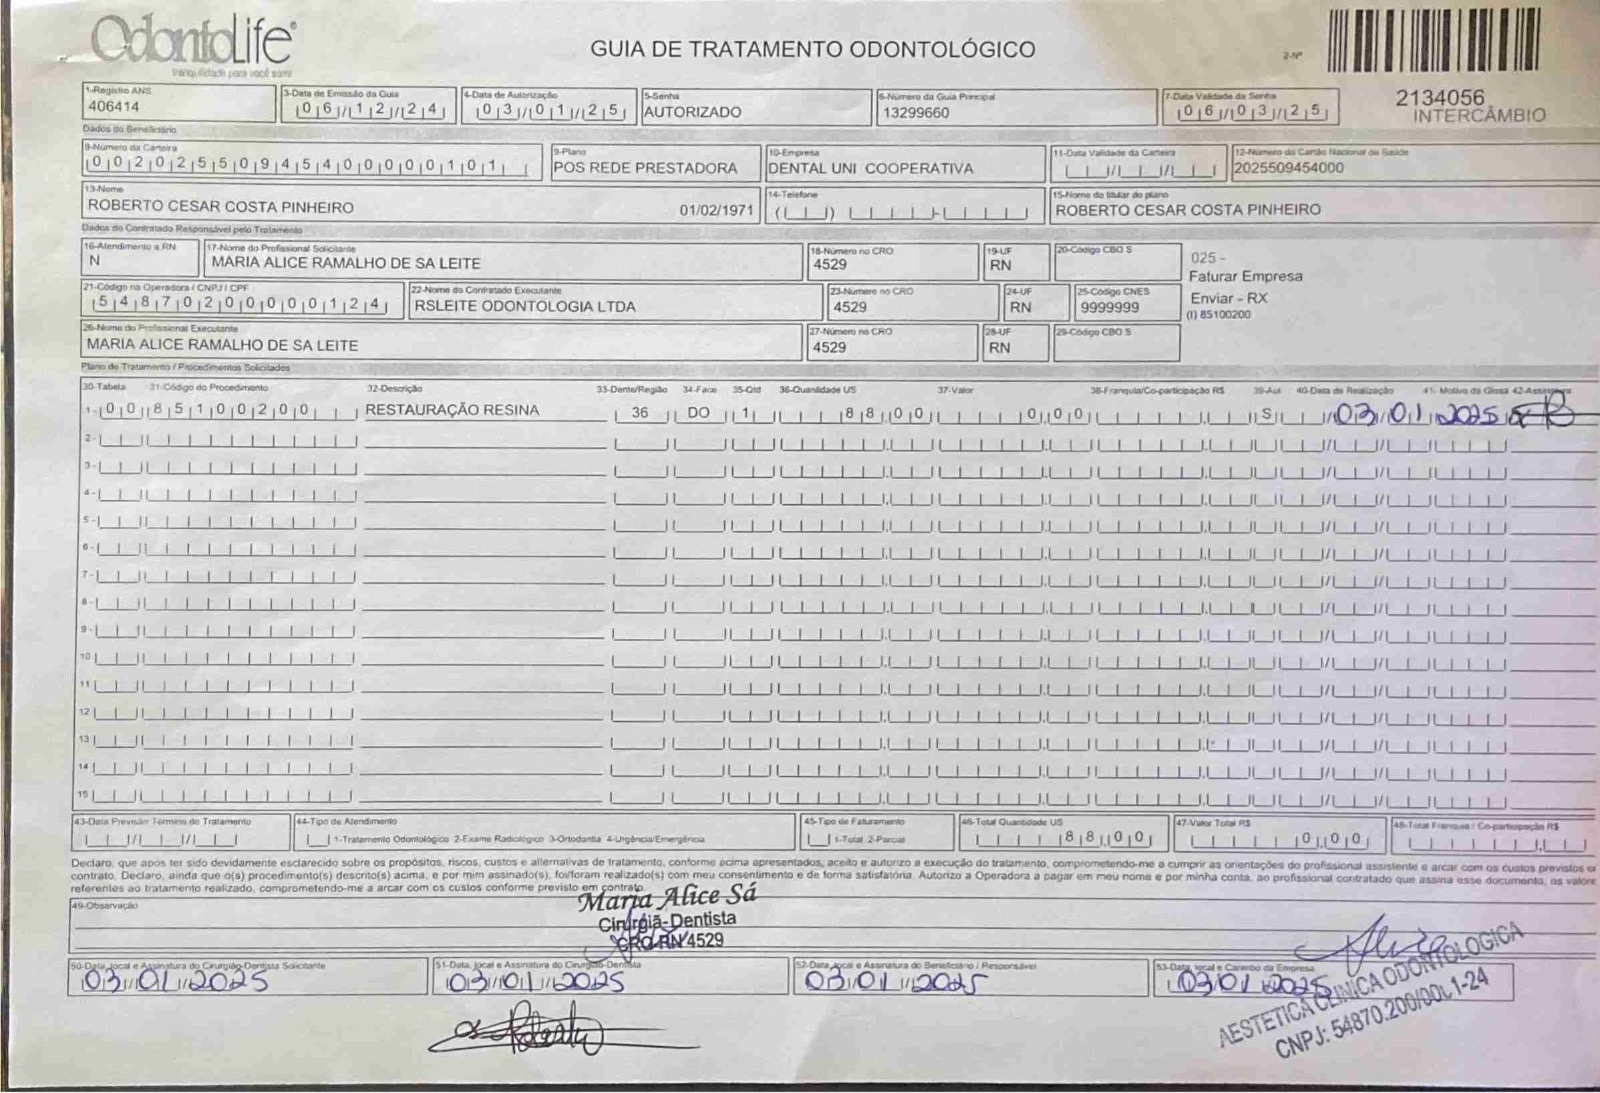 OdontoLife
tranquilidade para você sorrir
GUIA DE TRATAMENTO ODONTOLÓGICO
2-Nº
2134056
INTERCÂMBIO
1-Registro ANS
406414
3-Data de Emissão da Guia
06/12/24
4-Data de Autorização
03/01/25
5-Senha
AUTORIZADO
6-Número da Guia Principal
13299660
7-Data Validade da Senha
06/03/25
Dados do Beneficiário
8-Número da Carteira
00202550945400000101
9-Plano
POS REDE PRESTADORA
10-Empresa
DENTAL UNI COOPERATIVA
11-Data Validade da Carteira
12-Número do Cartão Nacional de Saúde
2025509454000
13-Nome
ROBERTO CESAR COSTA PINHEIRO 01/02/1971
14-Telefone
15-Nome do titular do plano
ROBERTO CESAR COSTA PINHEIRO
Dados do Contratado Responsável pelo Tratamento
16-Atendimento a RN
N
17-Nome do Profissional Solicitante
MARIA ALICE RAMALHO DE SA LEITE
18-Número no CRO
4529
19-UF
RN
20-Código CBO S
025 -
Faturar Empresa
Enviar - RX
(I) 85100200
21-Código na Operadora / CNPJ / CPF
54870200000124
22-Nome do Contratado Executante
RSLEITE ODONTOLOGIA LTDA
23-Número no CRO
4529
24-UF
RN
25-Código CNES
9999999
26-Nome do Profissional Executante
MARIA ALICE RAMALHO DE SA LEITE
27-Número no CRO
4529
28-UF
RN
29-Código CBO S
Plano de Tratamento / Procedimentos Solicitados
30-Tabela 31-Código do Procedimento 32-Descrição 33-Dente/Região 34-Face 35-Qtd 36-Quantidade US 37-Valor 38-Franquia/Co-participação R$ 39-Aut 40-Data de Realização 41- Motivo da Glosa 42-Assinatura
1- 00 85100200 RESTAURAÇÃO RESINA 36 DO 1 88,00 0,00 S 03/01/2025
2-
3-
4-
5-
6-
7-
8-
9-
10
11
12
13
14
15
43-Data Previsão Término do Tratamento
44-Tipo de Atendimento
1-Tratamento Odontológico 2-Exame Radiológico 3-Ortodontia 4-Urgência/Emergência
45-Tipo de Faturamento
1-Total 2-Parcial
46-Total Quantidade US
88,00
47-Valor Total R$
0,00
48-Total Franquia / Co-participação R$
Declaro, que após ter sido devidamente esclarecido sobre os propósitos, riscos, custos e alternativas de tratamento, conforme acima apresentados, aceito e autorizo a execução do tratamento, comprometendo-me a cumprir as orientações do profissional assistente e arcar com os custos previstos e
contrato. Declaro, ainda que o(s) procedimento(s) descrito(s) acima, e por mim assinado(s), foi/foram realizado(s) com meu consentimento e de forma satisfatória. Autorizo a Operadora a pagar em meu nome e por minha conta, ao profissional contratado que assina esse documento, os valore
referentes ao tratamento realizado, comprometendo-me a arcar com os custos conforme previsto em contrato.
49-Observação
Maria Alice Sá
Cirurgiã-Dentista
CRO-RN 4529
50-Data, local e Assinatura do Cirurgião-Dentista Solicitante
03/01/2025
51-Data, local e Assinatura do Cirurgião-Dentista
03/01/2025
52-Data, local e Assinatura do Beneficiário / Responsável
03/01/2025
53-Data, local e Carimbo da Empresa
03/01/2025
AESTETICA CLINICA ODONTOLOGICA
CNPJ: 54870.200/0001-24